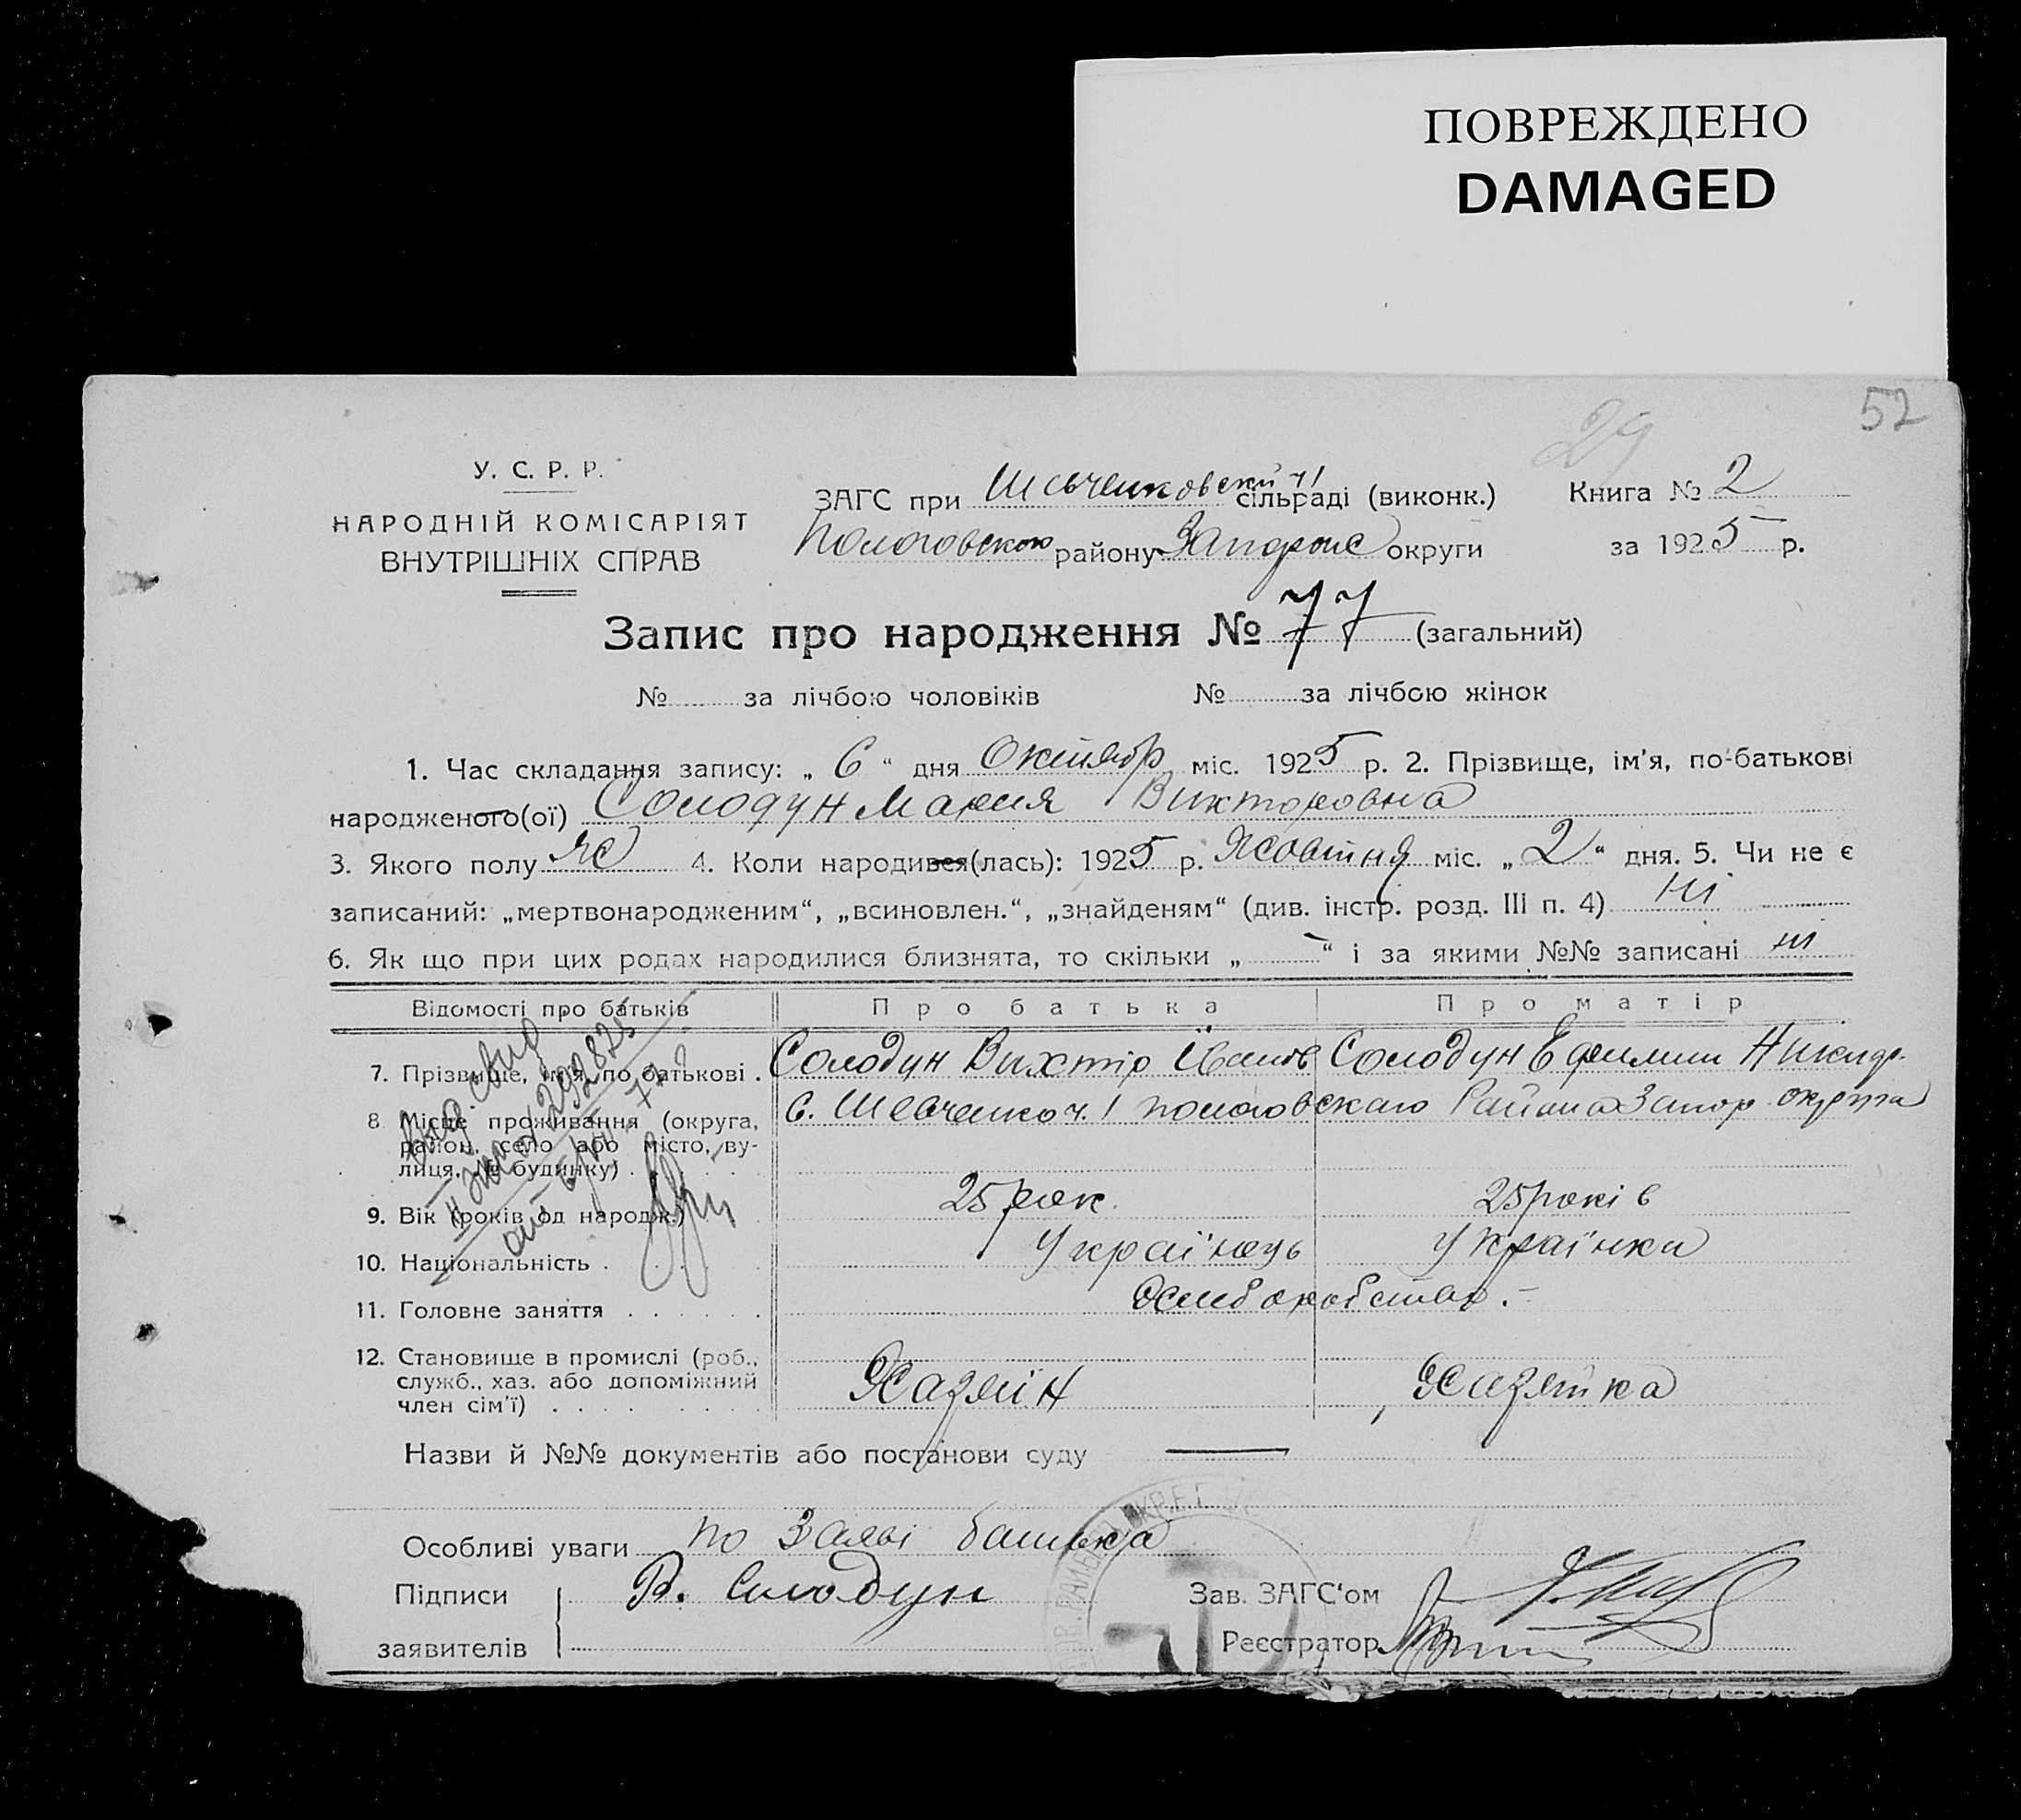 ПОВРЕЖДЕНО
DAMAGED
52
29
У. С. Р. Р.
НАРОДНІЙ КОМІСАРІЯТ
ВНУТРІШНІХ СПРАВ
ЗАГС при Шевченковский ч 1 сільраді (виконк.) Книга № 2
Пологовского району Запорож округи за 1925 р.
Запис про народження № 77 (загальний)
№ за лічбою чоловіків № за лічбою жінок
1. Час складання запису: „ 6 “ дня Октябр міс. 1925 р. 2. Прізвище, ім'я, по-батькові
народженого(ої) Солодун Мария Викторовна
3. Якого полу ж 4. Коли народився(лась): 1925 р. Жовтня міс. „ 2 “ дня. 5. Чи не є
записаний: „мертвонародженим“, „всиновлен.“, „знайденям“ (див. інстр. розд. III п. 4) ні
6. Як що при цих родах народилися близнята, то скільки „ — “ і за якими №№ записані ні
Відомості про батьків Про батька Про матір
7. Прізвище, ім'я, по батькові . Солодун Вихтір Іванов Солодун
8 Місце проживання (округа, район, село або місто, вулиця, № будинку) . с. Шевченко ч. 1 Пологовскаго Района Запор округа
9. Вік (років од народж.) 25 рок. 25 років
10. Національність . Українець Українка
11. Головне заняття . . . . . .
12. Становище в промислі (роб.,
служб., хаз. або допоміжний
член сім'ї) . . . . Хазяїн Хазяйка
Назви й №№ документів або постанови суду —
Особливі уваги по Заяві батька
Підписи В. Солодун Зав. ЗАГС'ом
заявителів Реєстратор